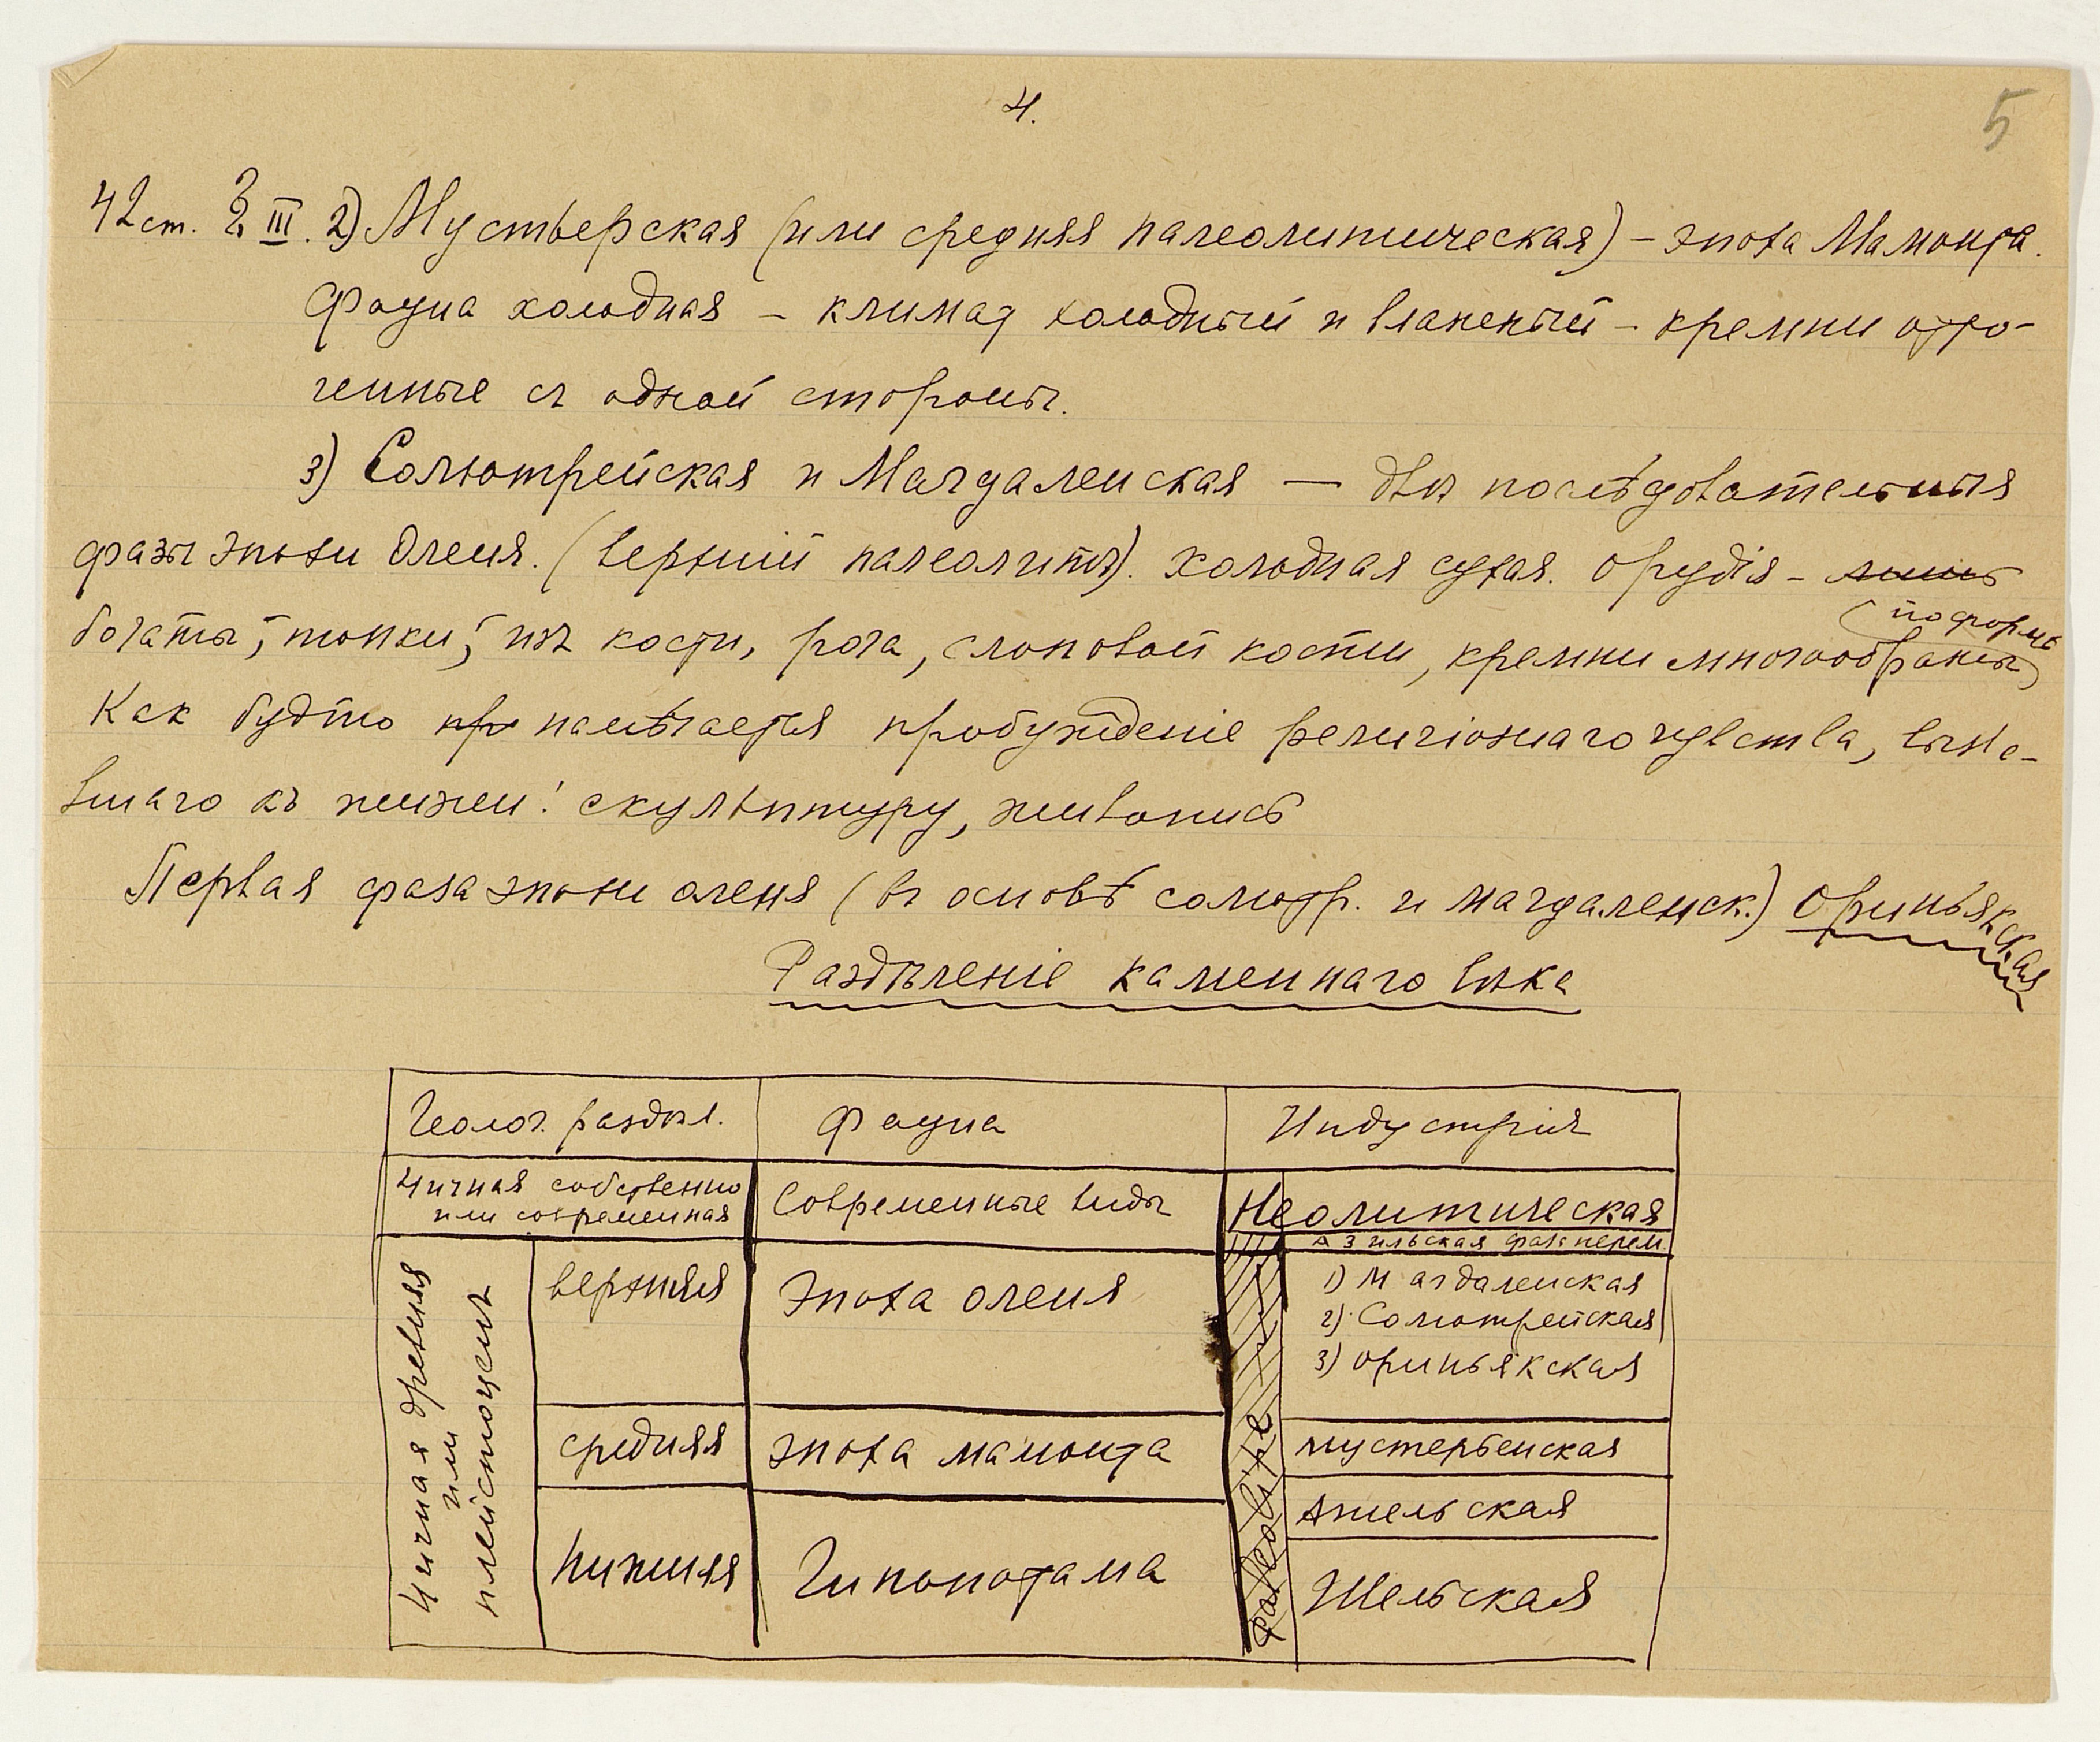 4.
5
42 ст. З III. 2) Мустьерская (или средняя палеолитическая) – эпоха Мамонта.
Фауна холодная – климат холодный и влажный – кремни отто-
ченные съ одной стороны.
3) Солютрейская и Магдаленская — двѣ послѣдовательныя
фазы эпохи Оленя. (верхний палеолитъ). Холодная сухая. Орудія –
богаты, тонки, изъ кости, рога, слоновой кости, кремни многообразны
(по формѣ)
Как будто намѣчается пробужденіе религіознаго чувства, вызва-
вшаго къ жизни: скульптуру, живопись
Первая фаза эпохи оленя (въ основѣ солютр. и магдаленск.) Ориньякская
Раздѣленіе каменнаго вѣка
Геолог. раздѣл. Фауна Индустрія
Чичная собственно
или современная
Современные виды
Неолитическая
Азильская фаза перем.
Чичная древняя
или
плейстоценъ
верхняя
Эпоха оленя
1) Магдаленская
2) Солютрейская
3) Ориньякская
средняя
эпоха мамонта
мустерьенская
Ашельская
нижняя
Гипопотама
Шельская